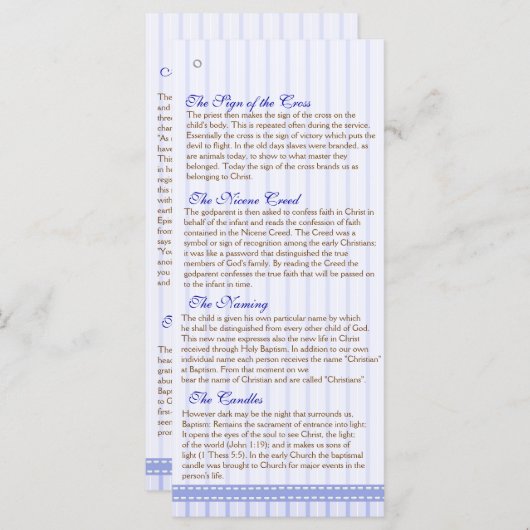 The Sign of the Cross
The priest then makes the sign of the cross on the
child's body. This is repeated often during the service.
Essentially the cross is the sign of victory which puts the
devil to flight. In the old days slaves were branded, as
are animals today, to show to what master they
belonged. Today the sign of the cross brands us as
belonging to Christ.
The Nicene Creed
The godparent is then asked to confess faith in Christ in
behalf of the infant and reads the confession of faith
contained in the Nicene Creed. The Creed was a
symbol or sign of recognition among the early Christians;
it was like a password that distinguished the true
members of God's family. By reading the Creed the
godparent confesses the true faith that will be passed on
to the infant in time.
The Naming
The child is given his own particular name by which
he shall be distinguished from every other child of God.
This new name expresses also the new life in Christ
received through Holy Baptism. In addition to our own
individual name each person receives the name "Christian"
at Baptism. From that moment on we
bear the name of Christian and are called "Christians".
The Candles
However dark may be the night that surrounds us,
Baptism: Remains the sacrament of entrance into light:
It opens the eyes of the soul to see Christ, the light;
of the world (John 1:19); and it makes us sons of
light (1 Thess 5:5). In the early Church the baptismal
candle was brought to Church for major events in the
person's life.
The
and
three
char
"As
have
This
in he
regis
this
with
earth
Epis
from
says
"You
anoi
you
and
The
head
grati
abu
Bapt
to G
first-
seen
is a